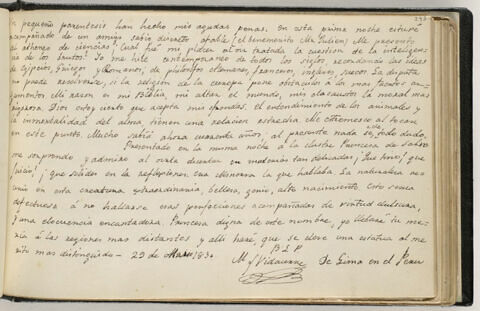 293
un pequeño parentesis han hecho mis agudas penas, en esta primera noche estuve
acompañado de un amigo sabio discreto afable (el benemerito Mr. Jullien) Me presente
al atheneo de ciencias, Cual fué mi placer al oir tratada la cuestion de la inteligen-
cia de los brutos! Yo me hice contemporaneo de todos los siglos, recordando las ideas
de Egipcios, Griegos y Romanos, de philosofos alemanes, franceses, ingleses, suecos. La disputa
no puede resolverse, si la religion de la creencia pone obstaculos à los mas fuertes ar-
gumentos. Mi razon es mi Biblia, mi altar el mundo, mis olocaustos la moral mas
rigorosa. Dios estoy ciento que acepta mis ofrendas. El entendimiento de los animales y
la inmortalidad del alma tienen una relacion estrecha. Me estremesco al tocar
en este punto. Mucho sabia ahora cuarenta años, al presente nada sé, todo dudo,
Presentado en la misma noche a la ilustre Princesa de Salm
me sorprendo y admiro al oirla disertar en materias tan delicadas; Que tino! que
juicio! que solidez en la reflexion. Era Minerva la que hablaba. La naturaleza reu-
nio en esta creatura extraordinaria, belleza, genio, alto nacimiento. Esto seria
defectuoso à no hallarse esas perfecciones acompañadas de virtud, dulsura,
y una elocuencia encantadora. Princesa digna de este nombre, yo llebaré tu me-
moria à las regiones mas distantes y alli haré que se eleve una estatua al me-
rito mas distinguido — 29 de Marzo 1830
B L P
M. L. Vidaurre De Lima en el Peru